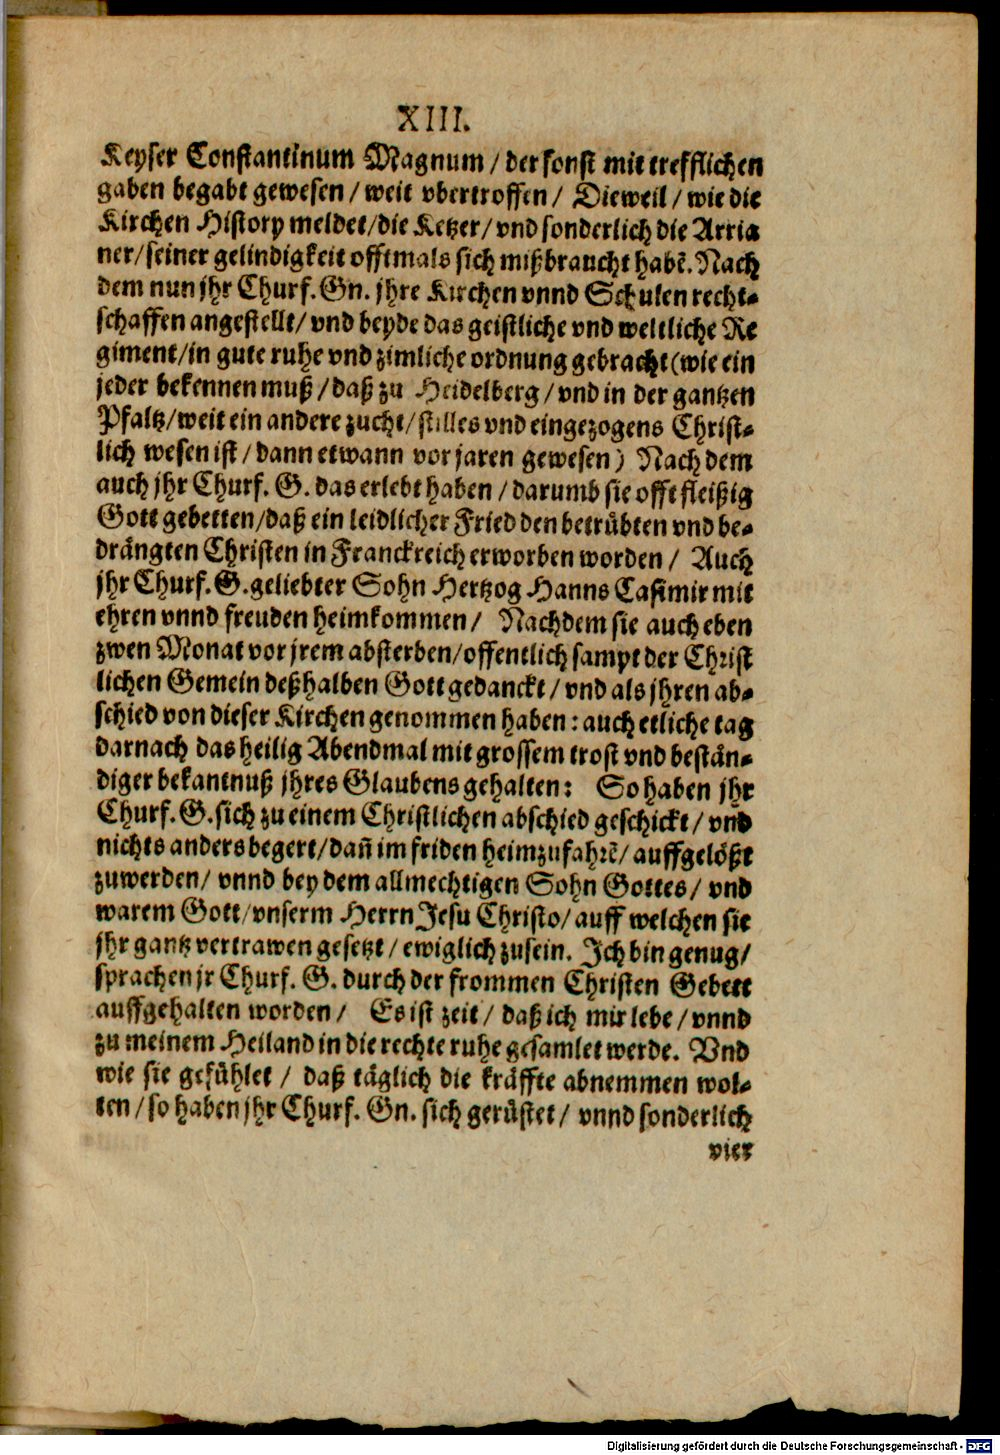 XIII.
Keyser Constantinum Magnum / der sonst mit trefflichen
gaben begabt gewesen / weit vbertroffen / Dieweil / wie die
Kirchen History meldet / die Ketzer / vnd sonderlich die Arria
ner / seiner gelindigkeit offtmals sich mißbraucht habẽ. Nach
dem nun jhr Churf. Gn. jhre Kirchen vnnd Schulen recht-
schaffen angestellt / vnd beyde das geistliche vnd weltliche Re
giment / in gute ruhe vnd zimliche ordnung gebracht (wie ein
jeder bekennen muß / daß zu Heidelberg / vnd in der gantzen
Pfaltz / weit ein andere zucht / stilles vnd eingezogens Christ-
lich wesen ist / dann etwann vor jaren gewesen) Nach dem
auch jhr Churf. G. das erlebt haben / darumb sie offt fleißig
Gott gebetten / daß ein leidlicher Fried den betrübten vnd be-
drängten Christen in Franckreich erworben worden / Auch
jhr Churf. G. geliebter Sohn Hertzog Hanns Casimir mit
ehren vnnd freuden heimkommen / Nachdem sie auch eben
zwen Monat vor jrem absterben / offentlich sampt der Christ
lichen Gemein deßhalben Gott gedanckt / vnd als jhren ab-
schied von dieser Kirchen genommen haben : auch etliche tag
darnach das heilig Abendmal mit grossem trost vnd bestän-
diger bekantnuß jhres Glaubens gehalten : So haben jhr
Churf. G. sich zu einem Christlichen abschied geschickt / vnd
nichts anders begert / dañ im friden heimzufahrẽ / auffgelößt
zuwerden / vnnd bey dem allmechtigen Sohn Gottes / vnd
warem Gott / vnserm Herrn Jesu Christo / auff welchen sie
jhr gantz vertrawen gesetzt / ewiglich zusein. Ich bin genug /
sprachen jr Churf. G. durch der frommen Christen Gebett
auffgehalten worden / Es ist zeit / daß ich mir lebe / vnnd
zu meinem Heiland in die rechte ruhe gesamlet werde. Vnd
wie sie gefühlet / daß täglich die kräffte abnemmen wol-
ten / so haben jhr Churf. Gn. sich gerüstet / vnnd sonderlich
vier
Digitalisierung gefördert durch die Deutsche Forschungsgemeinschaft - DFG